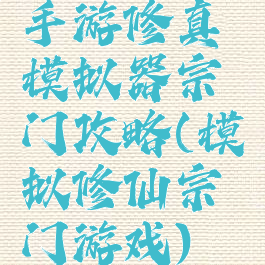 手游修真
模拟器宗
门攻略(模
拟修仙宗
门游戏)